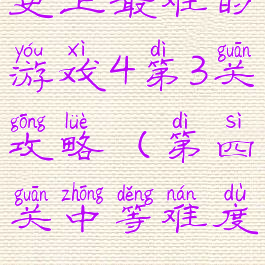 史上最难的
yóu xì dì guān
游戏4第3关
gōng lüè dì sì
攻略（第四
guān zhōng děng nán dù
关中等难度